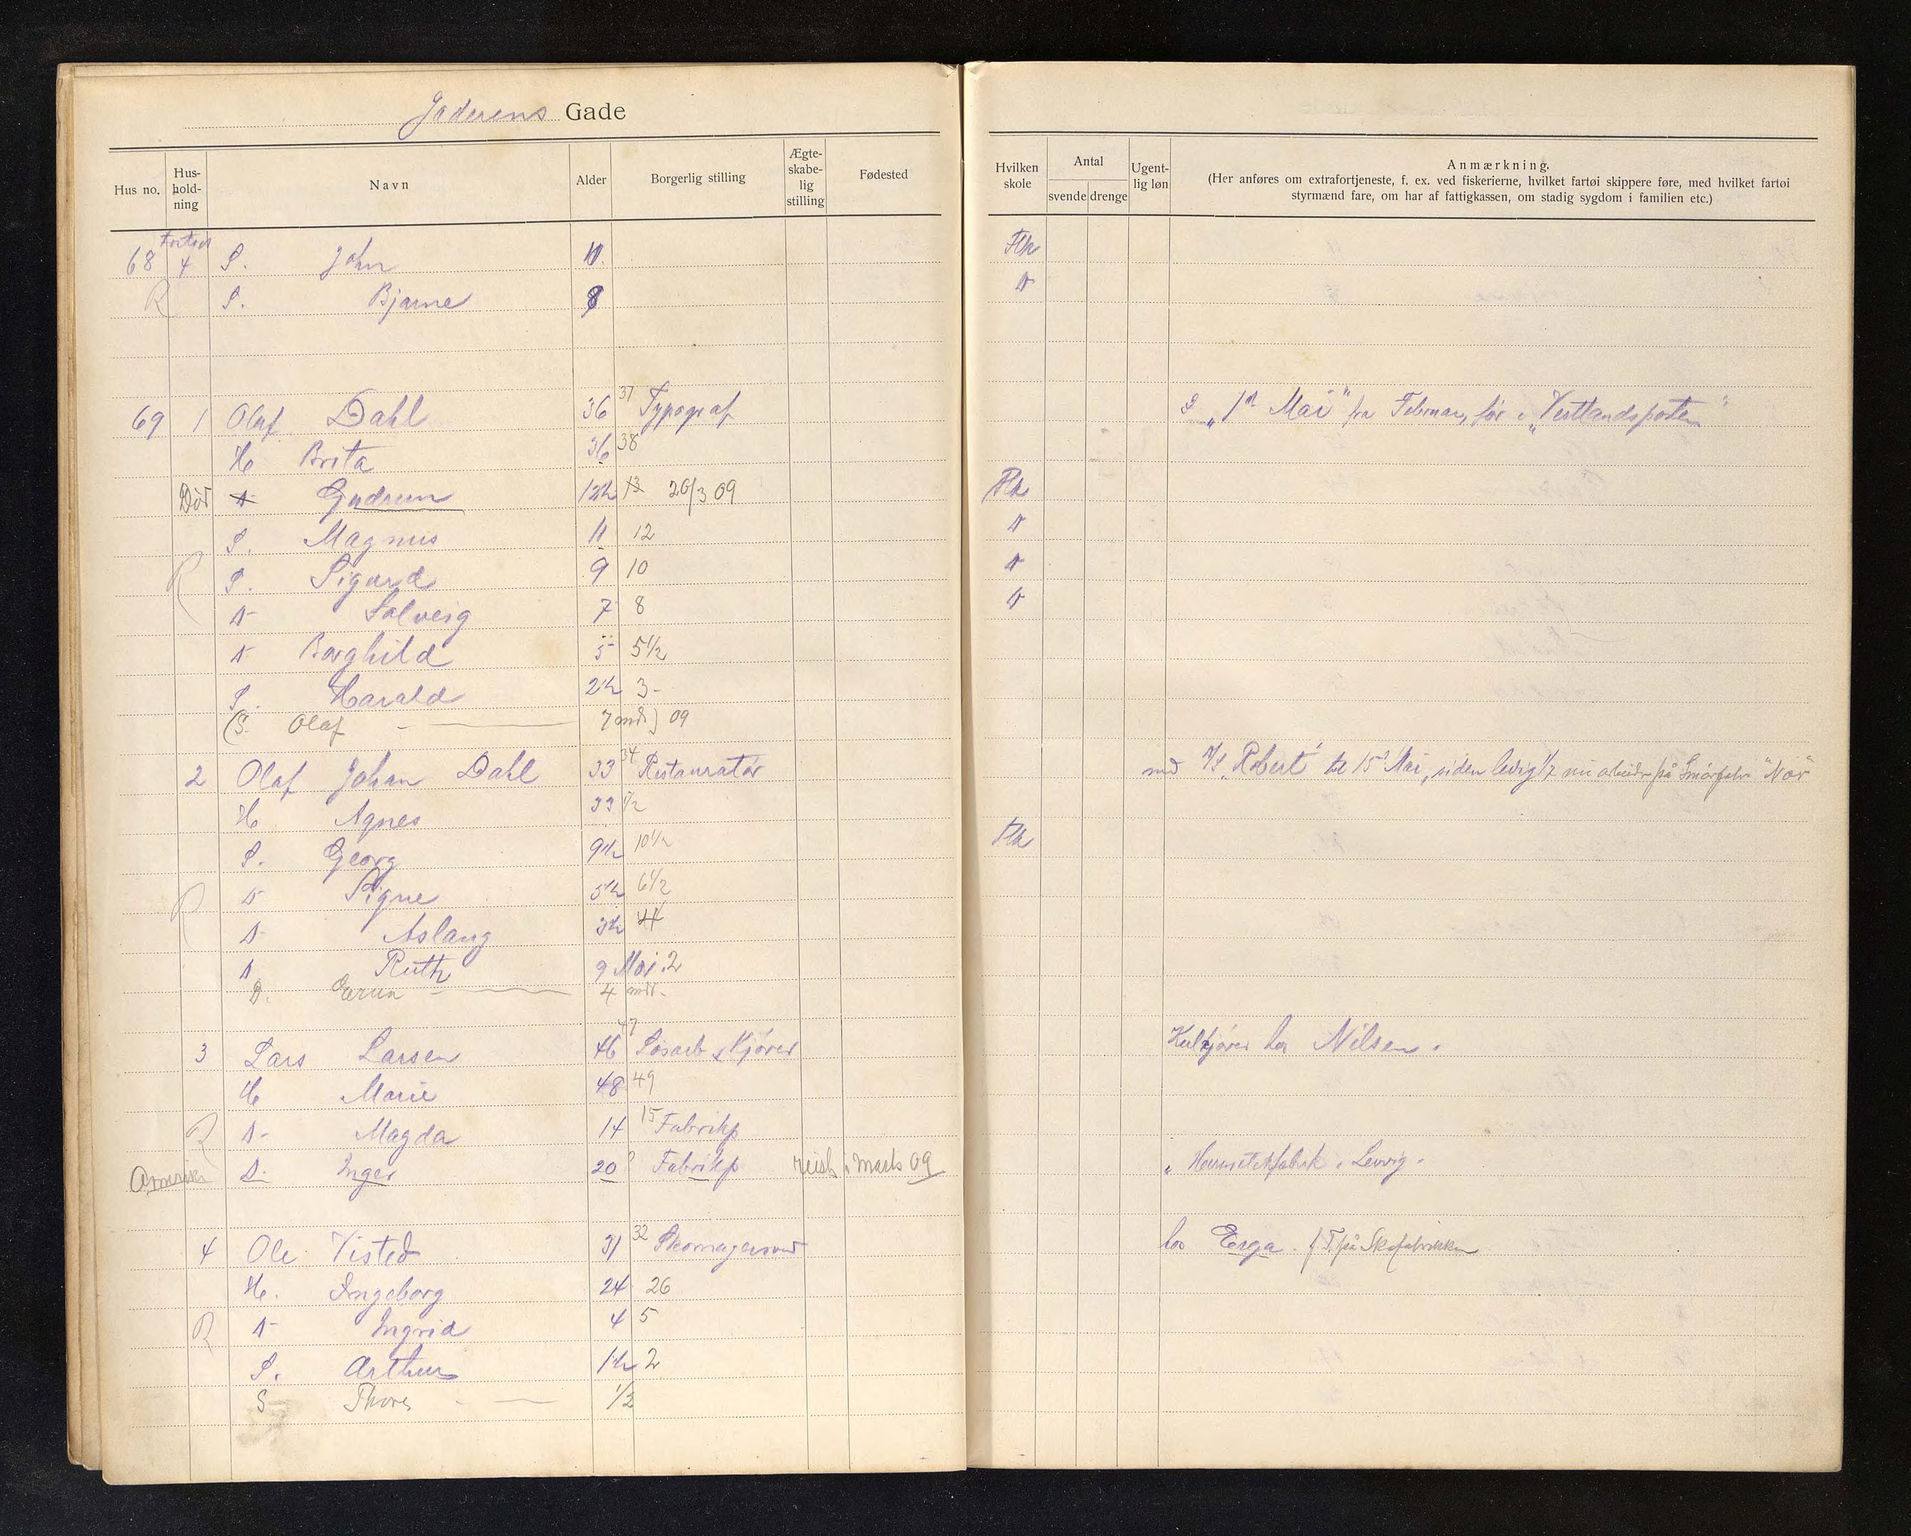 Jæderens Gade
Hus no. Hus-hold-ning Navn Alder Borgerlig stilling Ægte-skabe-lig stilling Fødested Hvilken skole Antal svende drenge Ugent-lig løn Anmærkning.
(Her anføres om extrafortjeneste, f. ex. ved fiskerierne, hvilket fartøi skippere føre, med hvilket fartøi
styrmænd fare, om har af fattigkassen, om stadig sygdom i familien etc.)
68 4 S. John 10 Flk
R S. Bjarne 8 D
69 1 Olaf Dahl 36 37 Typograf "1st Mai" fra Februar, før i "Vestlandsposten"
H Brita 36 38
Død D Gudrun 12½ 13 20/3 09 Flk
S. Magnus 11 12 D
R S. Sigurd 9 10 D
D Solveig 7 8 D
D Borghild 5 5½
S. Harald 2½ 3 -
(S. Olaf - 7 mdr) 09
2 Olaf Johan Dahl 33 34 Restauratør med D/S "Robert" til 15 Mai, siden ledig 1/7 nu arbeider på Smørfabr "Nor"
H Agnes 33 ½
S. Georg 9½ 10½ Flk
R D Signe 5½ 6½
D Aslaug 3½ 4
D Ruth 9 Mdr. 2
D. 4 mdr.
3 Lars Larsen 46 47 Løsarb & Kjører Kulkjører hos Nilsen.
H Marie 48 49
R D Magda 14 15 Fabrikp
Amerika D. Inger 20 ? Fabrikp reist i marts 09 Hermetikfabrik i Lervig.
4 Ole Visted 31 32 Skomagersvend hos Erga. f. T. på Skofabrikken
H. Ingeborg 24 26
R D Ingrid 4 5
S. Arthur 1½ 2
S Thore - ½